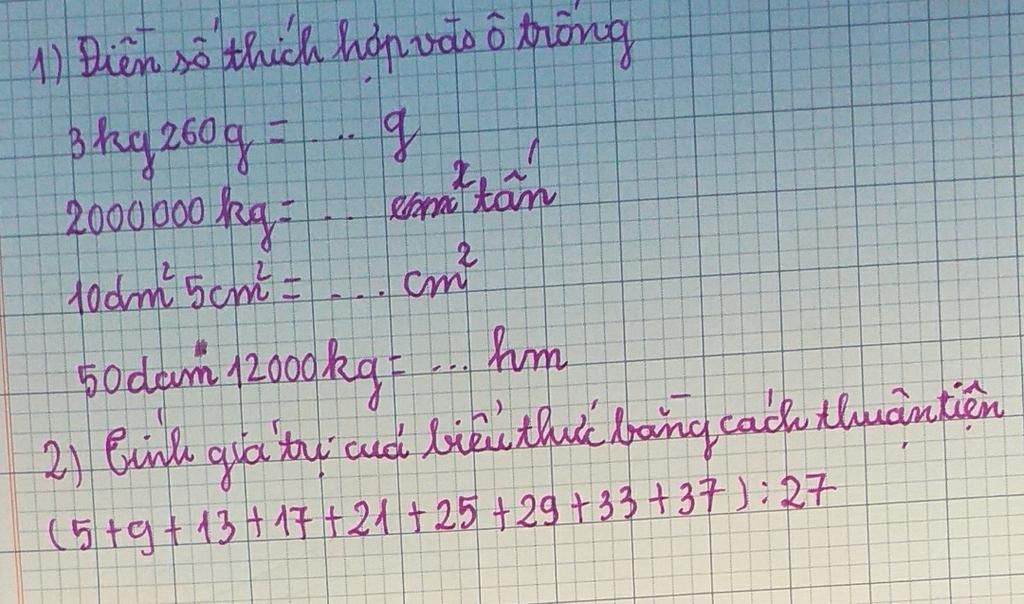 1) Điền số thích hợp vào ô trống
3kg 260g = ... g
2000000 kg = ... tấn
10dm² 5cm² = ... cm²
50dam 12000kg = ... hm
2) Tính giá trị của biểu thức bằng cách thuận tiện
(5+9+13+17+21+25+29+33+37):27